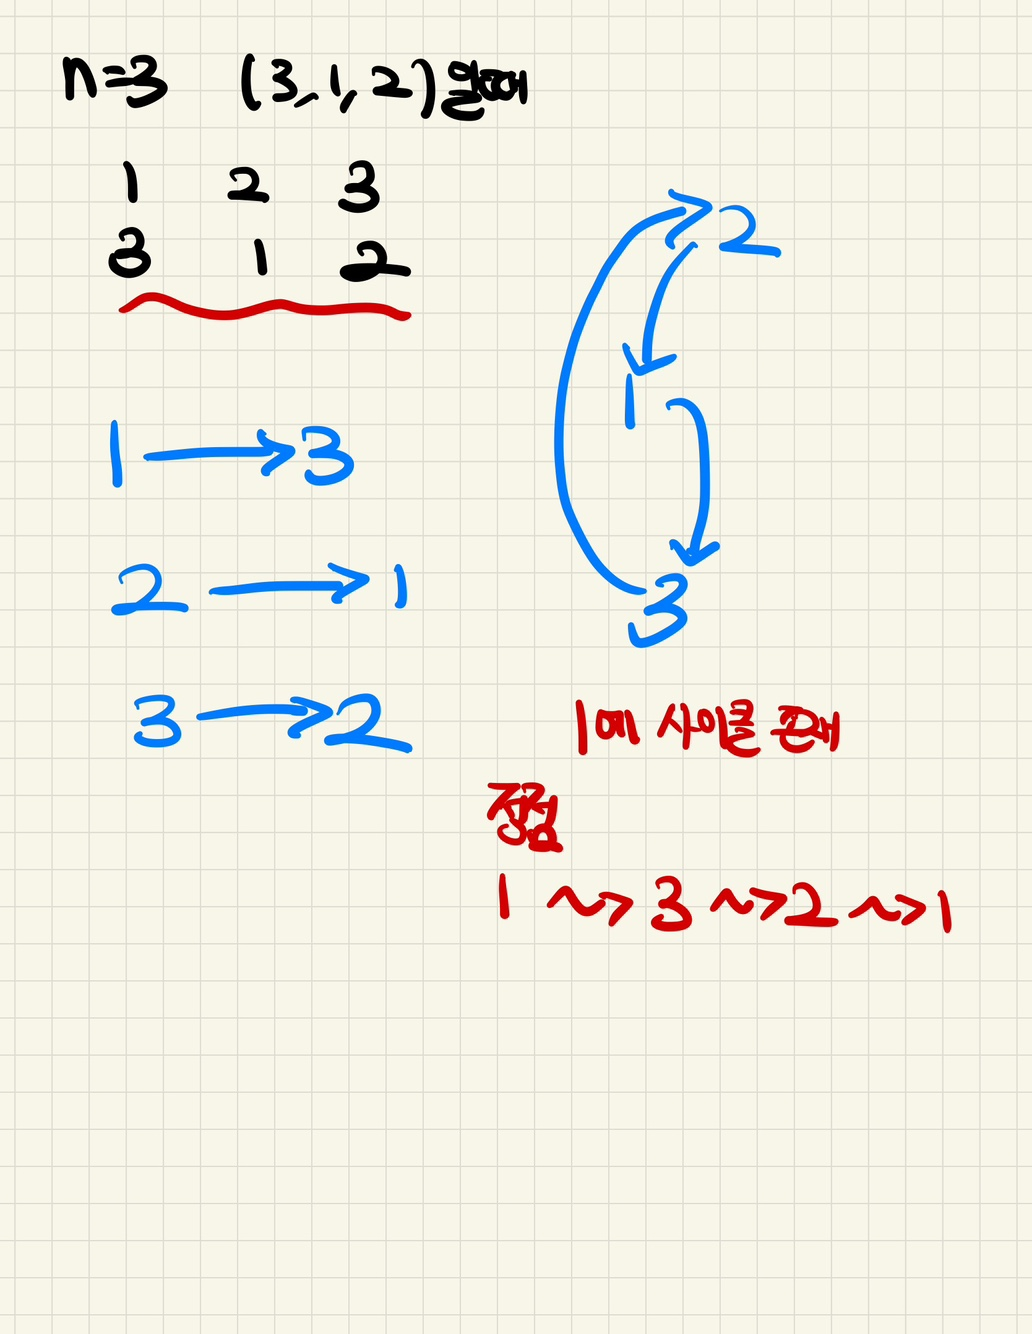 n=3 (3,1,2)일때
1 2 3
3 1 2
1 → 3
2 → 1
3 → 2
2
1
3
1에 사이클 존재
정점
1 ~> 3 ~> 2 ~> 1